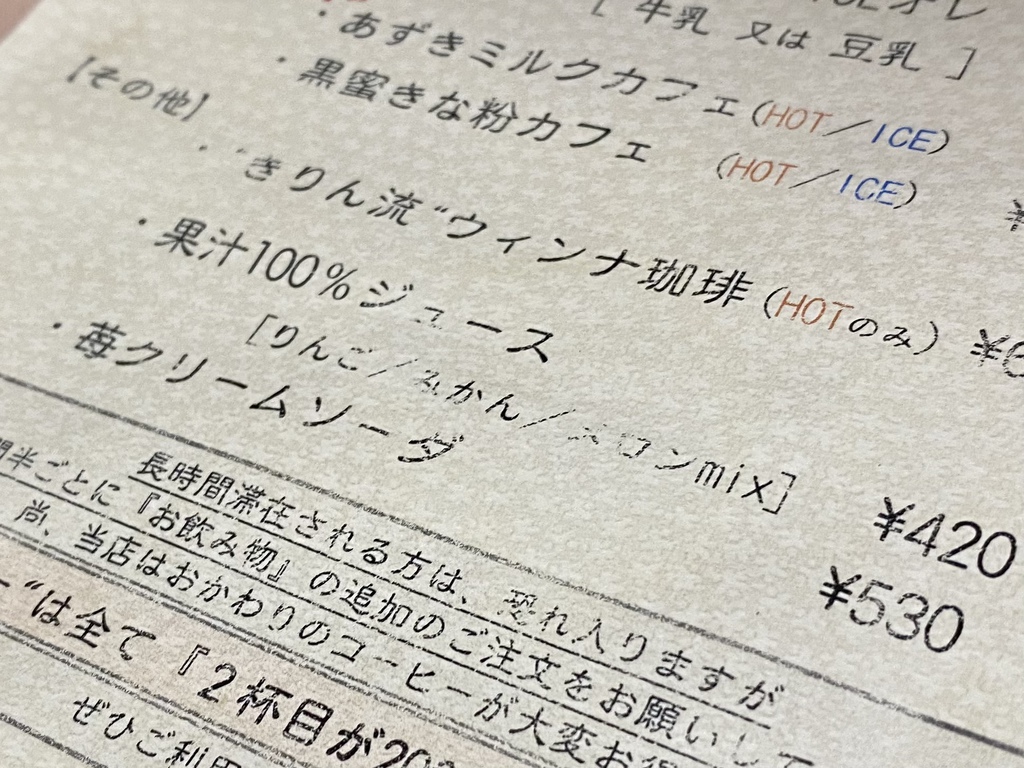 オレ
[ 牛乳 又は 豆乳 ]
・あずきミルクカフェ(HOT/ICE)
・黒蜜きな粉カフェ (HOT/ICE) ¥
【その他】
・"きりん流"ウィンナ珈琲(HOTのみ) ¥6
・果汁100%ジュース
[りんご/みかん/メロンmix] ¥420
・苺クリームソーダ ¥530
長時間滞在される方は、恐れ入りますが
間半ごとに『お飲み物』の追加のご注文をお願いして
尚、当店はおかわりのコーヒーが大変お得
ー"は全て『2杯目が20
ぜひご利用